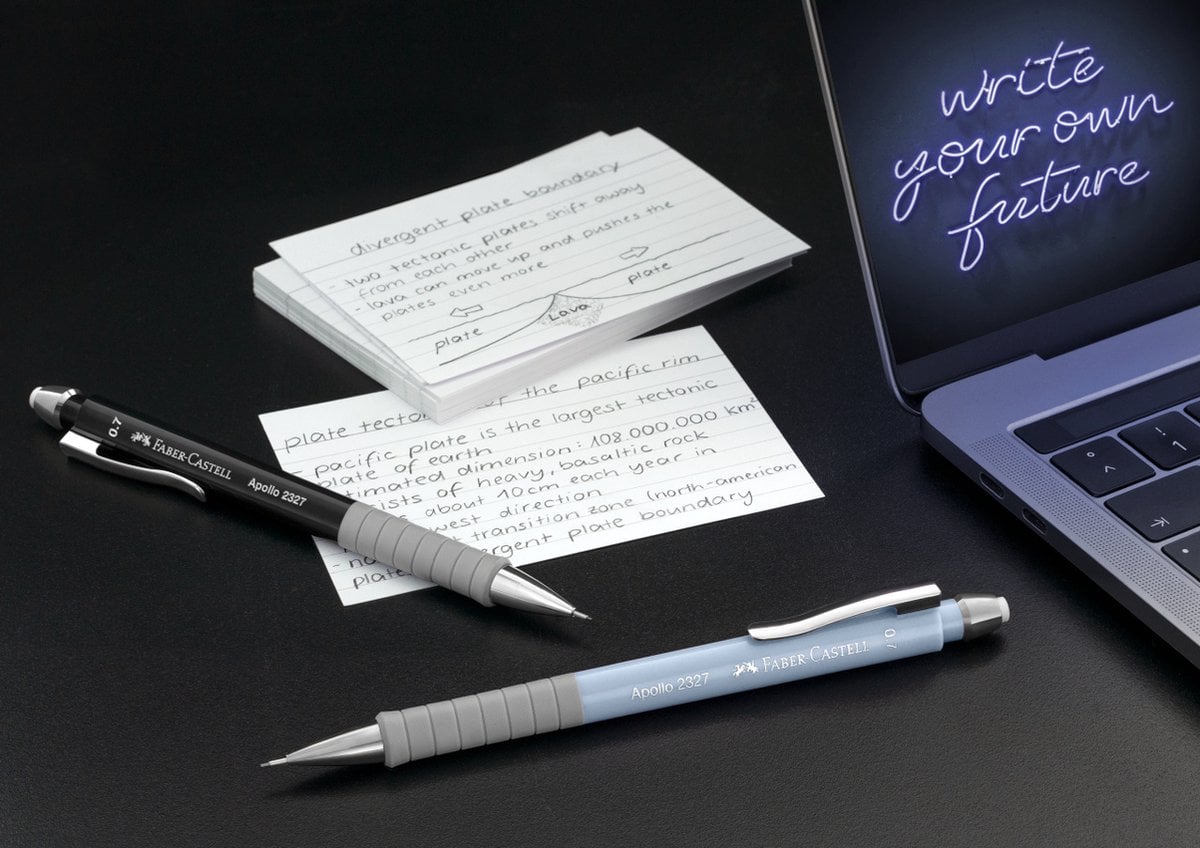 write
your own
future
divergent plate boundary
- two tectonic plates shift away
from each other
- lava can move up and pushes the
plates even more
plate
Lava
plate
plate tecto of the pacific rim
pacific plate is the largest tectonic
plate of earth
timated dimension: 108.000.000 km²
ists of heavy, basaltic rock
about 10cm each year in
west direction
transition zone (north-american
- no ergent plate boundary
plate
0.7
FABER-CASTELL
Apollo 2327
Apollo 2327
FABER-CASTELL
0.7